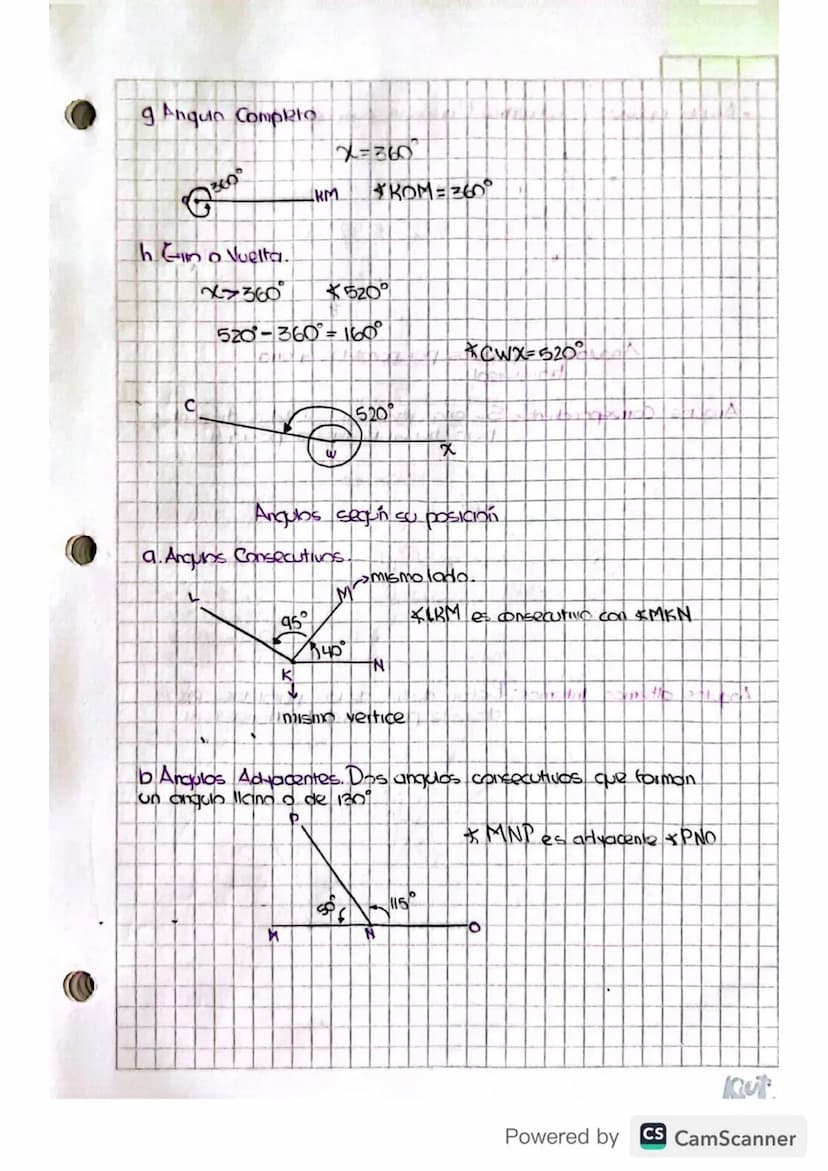 g Angulo Completo
x=360°
360°
KM
∢KOM=360°
h Giro o Vuelta.
x>360° ∢520°
520°-360°=160°
∢CWX=520°
C
520°
W
X
Angulos según su posición
a. Angulos Consecutivos.
M→mismo lado.
L
95°
∢LKM es consecutivo con ∢MKN
40°
K
N
mismo vertice
b Angulos Adyacentes. Dos angulos consecutivos que forman
un angulo llano o de 180°
P
∢MNP es adyacente ∢PNO
50°
115°
M
N
O
Powered by CS CamScanner